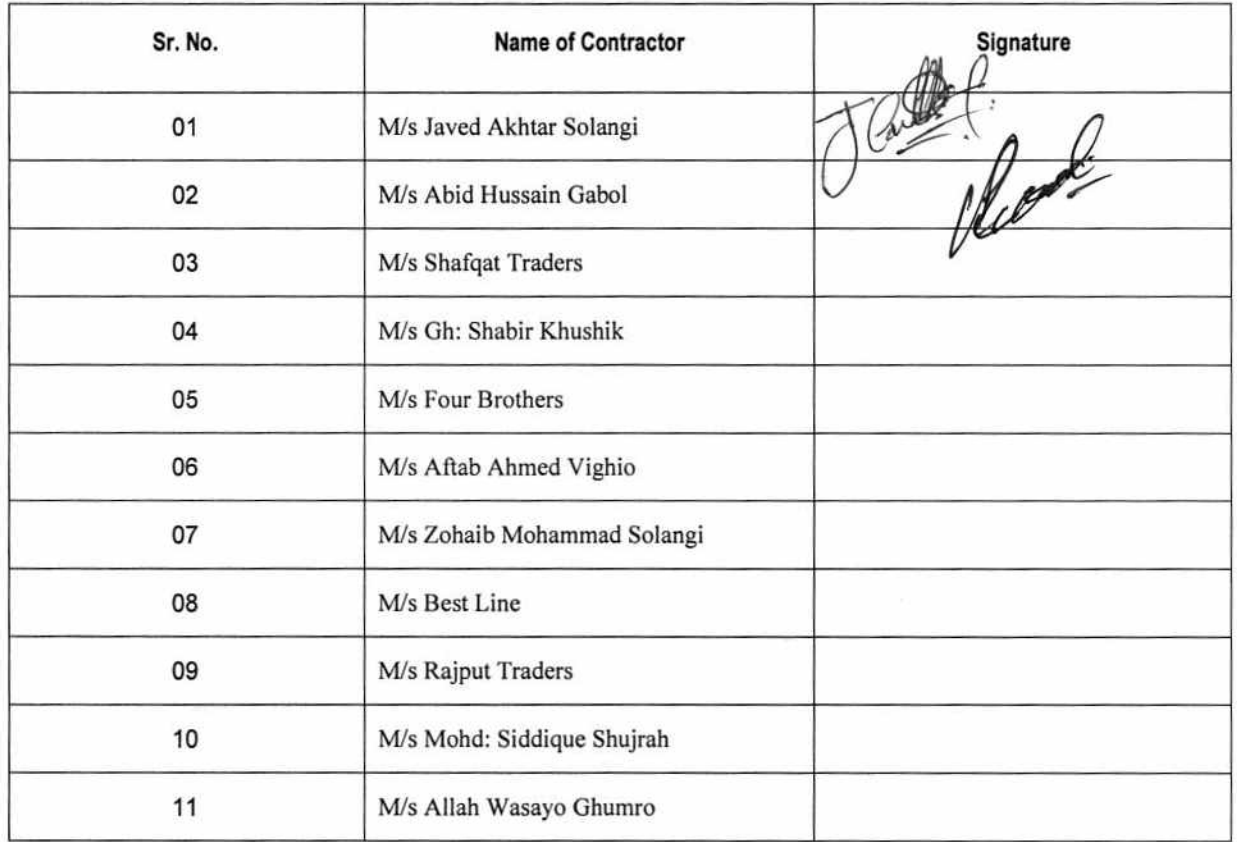 Sr. No. Name of Contractor Signature
01 M/s Javed Akhtar Solangi
02 M/s Abid Hussain Gabol
03 M/s Shafqat Traders
04 M/s Gh: Shabir Khushik
05 M/s Four Brothers
06 M/s Aftab Ahmed Vighio
07 M/s Zohaib Mohammad Solangi
08 M/s Best Line
09 M/s Rajput Traders
10 M/s Mohd: Siddique Shujrah
11 M/s Allah Wasayo Ghumro